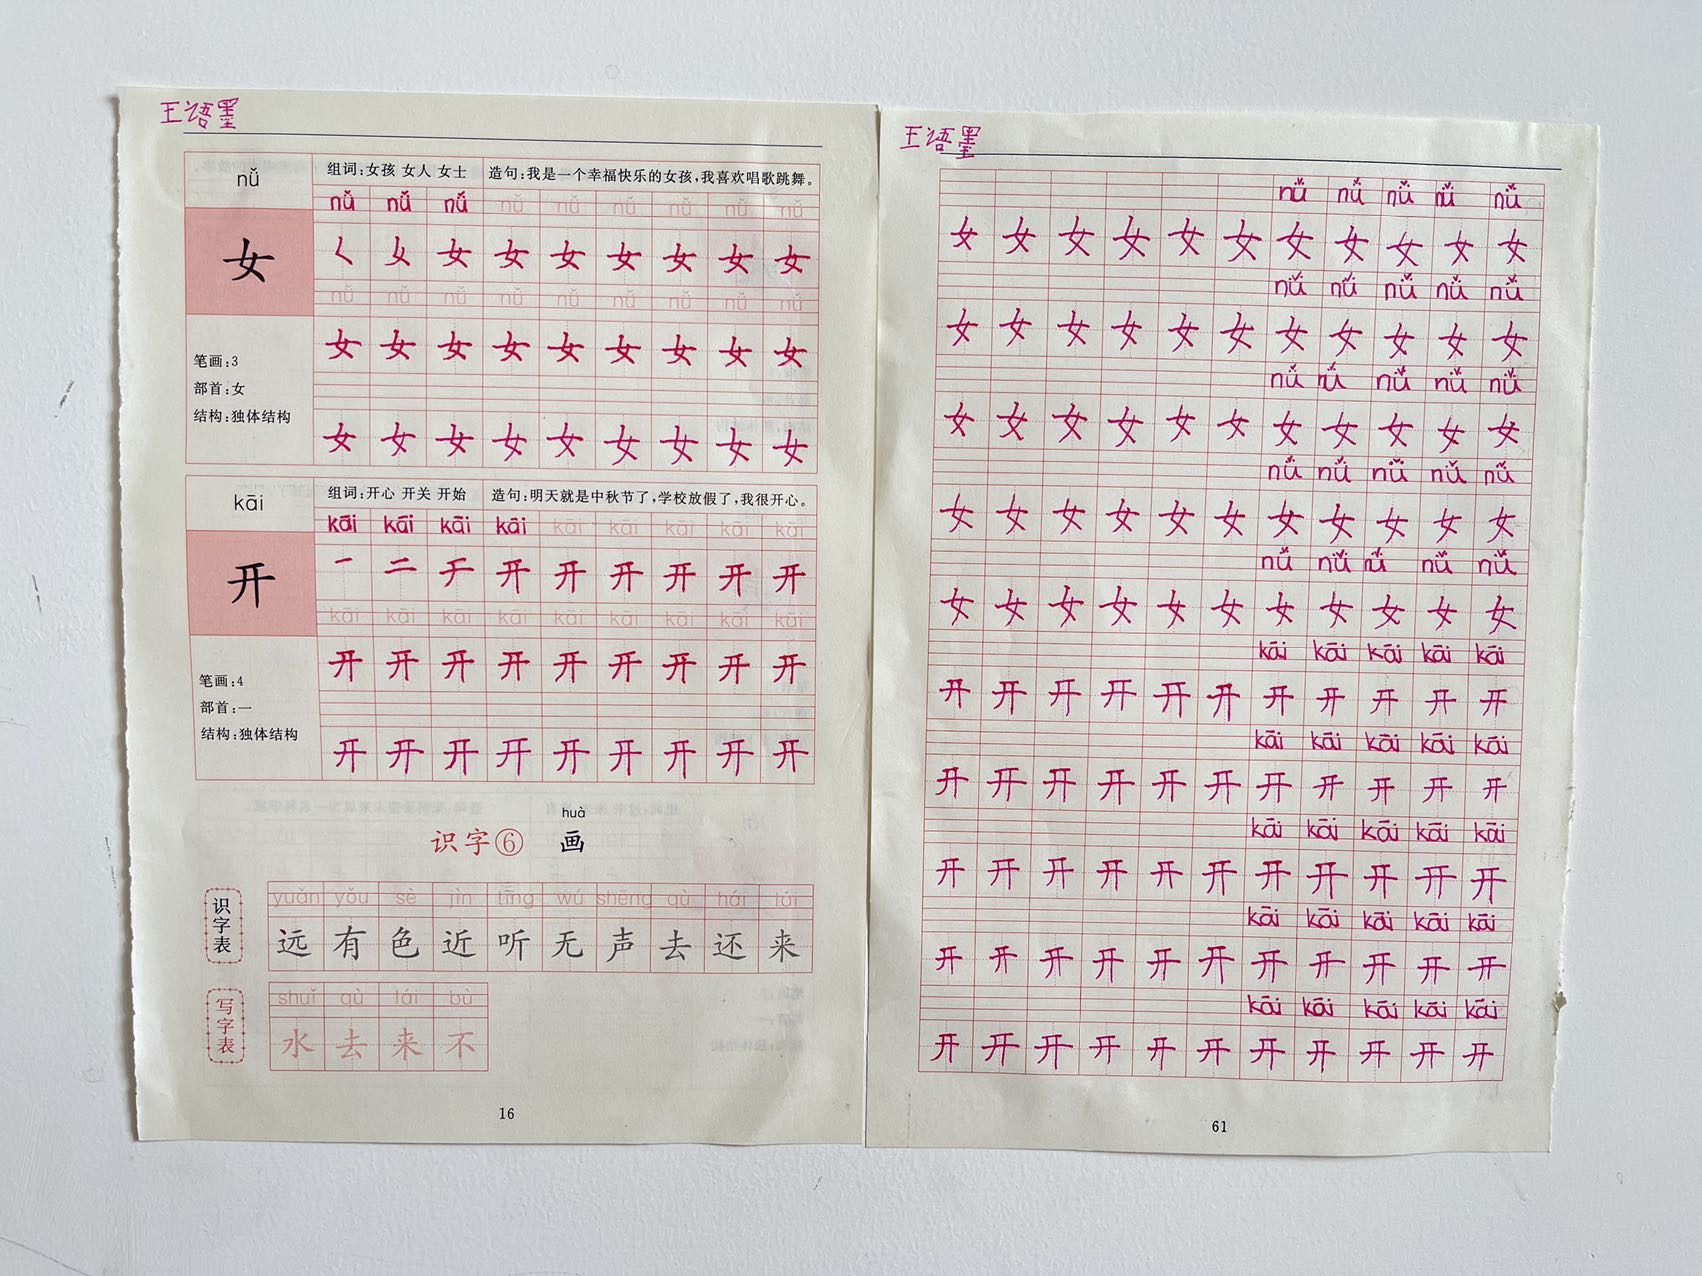 王语墨
nǚ 组词:女孩 女人 女士 造句:我是一个幸福快乐的女孩,我喜欢唱歌跳舞。
nǚ nǚ nǚ nǚ nǚ nǚ nǚ nǚ nǚ
女 女 女 女 女 女 女 女
nǚ nǚ nǚ nǚ nǚ nǚ nǚ nǚ nǚ
笔画:3 女 女 女 女 女 女 女 女 女
部首:女
结构:独体结构
女 女 女 女 女 女 女 女 女
kāi 组词:开心 开关 开始 造句:明天就是中秋节了,学校放假了,我很开心。
kāi kāi kāi kāi kāi kāi kāi kāi kāi
开 一 二 于 开 开 开 开 开 开
kāi kāi kāi kāi kāi kāi kāi kāi kāi
笔画:4 开 开 开 开 开 开 开 开 开
部首:一
结构:独体结构
开 开 开 开 开 开 开 开 开
huà
识字⑥ 画
yuǎn yǒu sè jìn tīng wú shēng qù hái lái
识字表 远 有 色 近 听 无 声 去 还 来
shuǐ qù lái bù
写字表 水 去 来 不
16
王语墨
nǚ nǚ nǚ nǚ nǚ
女 女 女 女 女 女 女 女 女 女 女
nǚ nǚ nǚ nǚ nǚ
女 女 女 女 女 女 女 女 女 女 女
nǚ nǚ nǚ nǚ nǚ
女 女 女 女 女 女 女 女 女 女 女
nǚ nǚ nǚ nǚ nǚ
女 女 女 女 女 女 女 女 女 女 女
nǚ nǚ nǚ nǚ nǚ
女 女 女 女 女 女 女 女 女 女 女
kāi kāi kāi kāi kāi
开 开 开 开 开 开 开 开 开 开 开
kāi kāi kāi kāi kāi
开 开 开 开 开 开 开 开 开 开 开
kāi kāi kāi kāi kāi
开 开 开 开 开 开 开 开 开 开 开
kāi kāi kāi kāi kāi
开 开 开 开 开 开 开 开 开 开 开
kāi kāi kāi kāi kāi
开 开 开 开 开 开 开 开 开 开 开
61